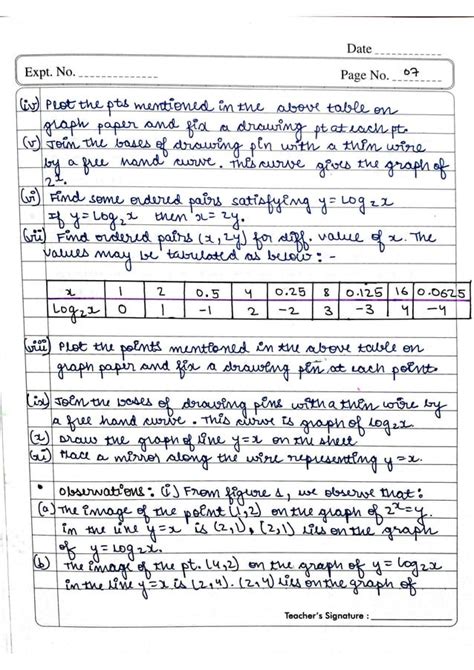 Date
Expt. No.
Page No. 07
(iv) Plot the pts mentioned in the above table on
graph paper and fix a drawing pt at each pt.
(v) Join the bases of drawing pin with a thin wire
by a free hand curve. This curve gives the graph of
2ˣ.
(vi) Find some ordered pairs satisfying y = log₂x
If y = log₂x then x = 2y.
(vii) Find ordered pairs (x, 2y) for diff. value of x. The
values may be tabulated as below : -
x 1 2 0.5 4 0.25 8 0.125 16 0.0625
Log₂x 0 1 -1 2 -2 3 -3 4 -4
(viii) Plot the points mentioned in the above table on
graph paper and fix a drawing pin at each point.
(ix) Join the bases of drawing pins with a thin wire by
a free hand curve. This curve is graph of log₂x
(x) Draw the graph of line y = x on the sheet
(xi) Place a mirror along the wire representing y = x.
• Observations : (i) From figure 1, we observe that :
(a) The image of the point (1,2) on the graph of 2ˣ = y.
in the line y = x is (2,1). (2,1) lies on the graph
of y = log₂x.
(b) The image of the pt. (4,2) on the graph of y = log₂x
in the line y = x is (2,4). (2,4) lies on the graph of
Teacher's Signature :